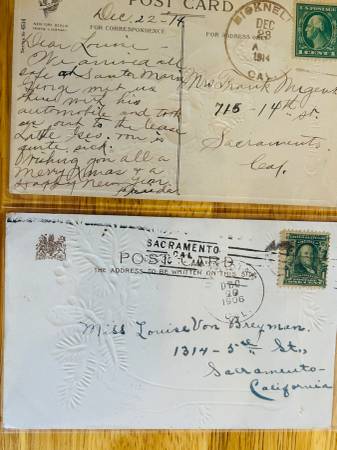 POST CARD
NEW YORK BERLIN
FOR CORRESPONDENCE
FOR ADDRESS
Dec. 22-14
BICKNELL
DEC
23
A
1914
CAL.
Dear Louise-
We arrived all
safe at Santa Maria
George met us
there with his
automobile and took
us out to the lease
Little Geo. Jr. is
quite sick.
Wishing you all a
Merry Xmas & a
Happy New Year
Mrs Frank Nugent
715-14th St.
Sacramento
Cal.
SACRAMENTO
CAL.
POST CARD
THE ADDRESS TO BE WRITTEN ON THIS SIDE
DEC
20
1906
CAL.
Miss Louise Von Breyman.
1314-5th St.,
Sacramento-
California